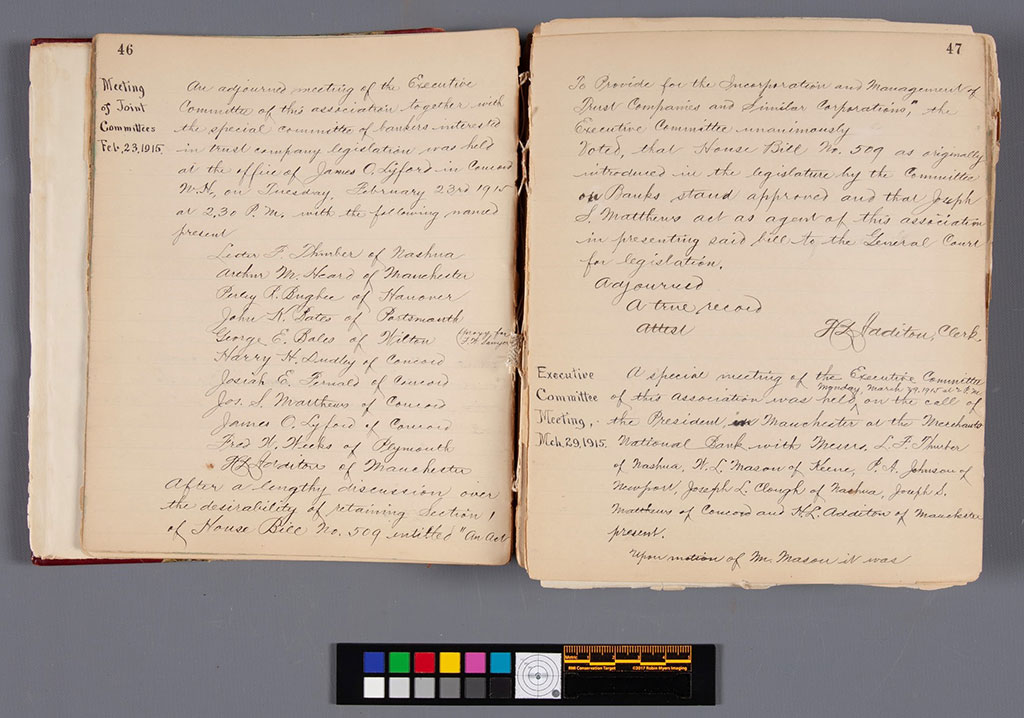 46
Meeting
of Joint
Committees
Feb. 23, 1915.
An adjourned meeting of the Executive
Committee of this association together with
the special committee of bankers interested
in trust company legislation was held
at the office of James O. Lyford in Concord
N.H., on Tuesday, February 23rd 1915
at 2.30 P.M. with the following named
present
Lester F. Thurber of Nashua
Arthur M. Heard of Manchester
Perley R. Bugbee of Hanover
John K. Bates of Portsmouth
George E. Bales of Wilton
(Proxy for
F. W. Sawyer)
Harry H. Dudley of Concord
Josiah E. Fernald of Concord
Jos. S. Matthews of Concord
James O. Lyford of Concord
Fred W. Weeks of Plymouth
H L Additon of Manchester
After a lengthy discussion over
the desirability of retaining Section 1
of House Bill No. 509 intitled "An Act
47
To Provide for the Incorporation and Management of
Trust Companies and Similar Corporations", the
Executive Committee unanimously
Voted, that House Bill No. 509 as originally
introduced in the legislature by the Committee
on Banks stand approved and that Joseph
S. Matthews act as agent of this association
in presenting said bill to the General Court
for legislation.
Adjourned
A true record
Attest
H L Additon, Clerk.
Executive
Committee
Meeting,
Mch. 29, 1915.
A special meeting of the Executive Committee
Monday March 29, 1915 at
of this Association was held, on the call of
the President, in Manchester at the Merchants
National Bank with Messrs. L. F. Thurber
of Nashua, W. L. Mason of Keene, P. A. Johnson of
Newport, Joseph L. Clough of Nashua, Joseph S.
Matthews of Concord and H. L. Additon of Manchester
present.
Upon motion of Mr. Mason it was
BMI Conservation Target
©2017 Robin Myers Imaging